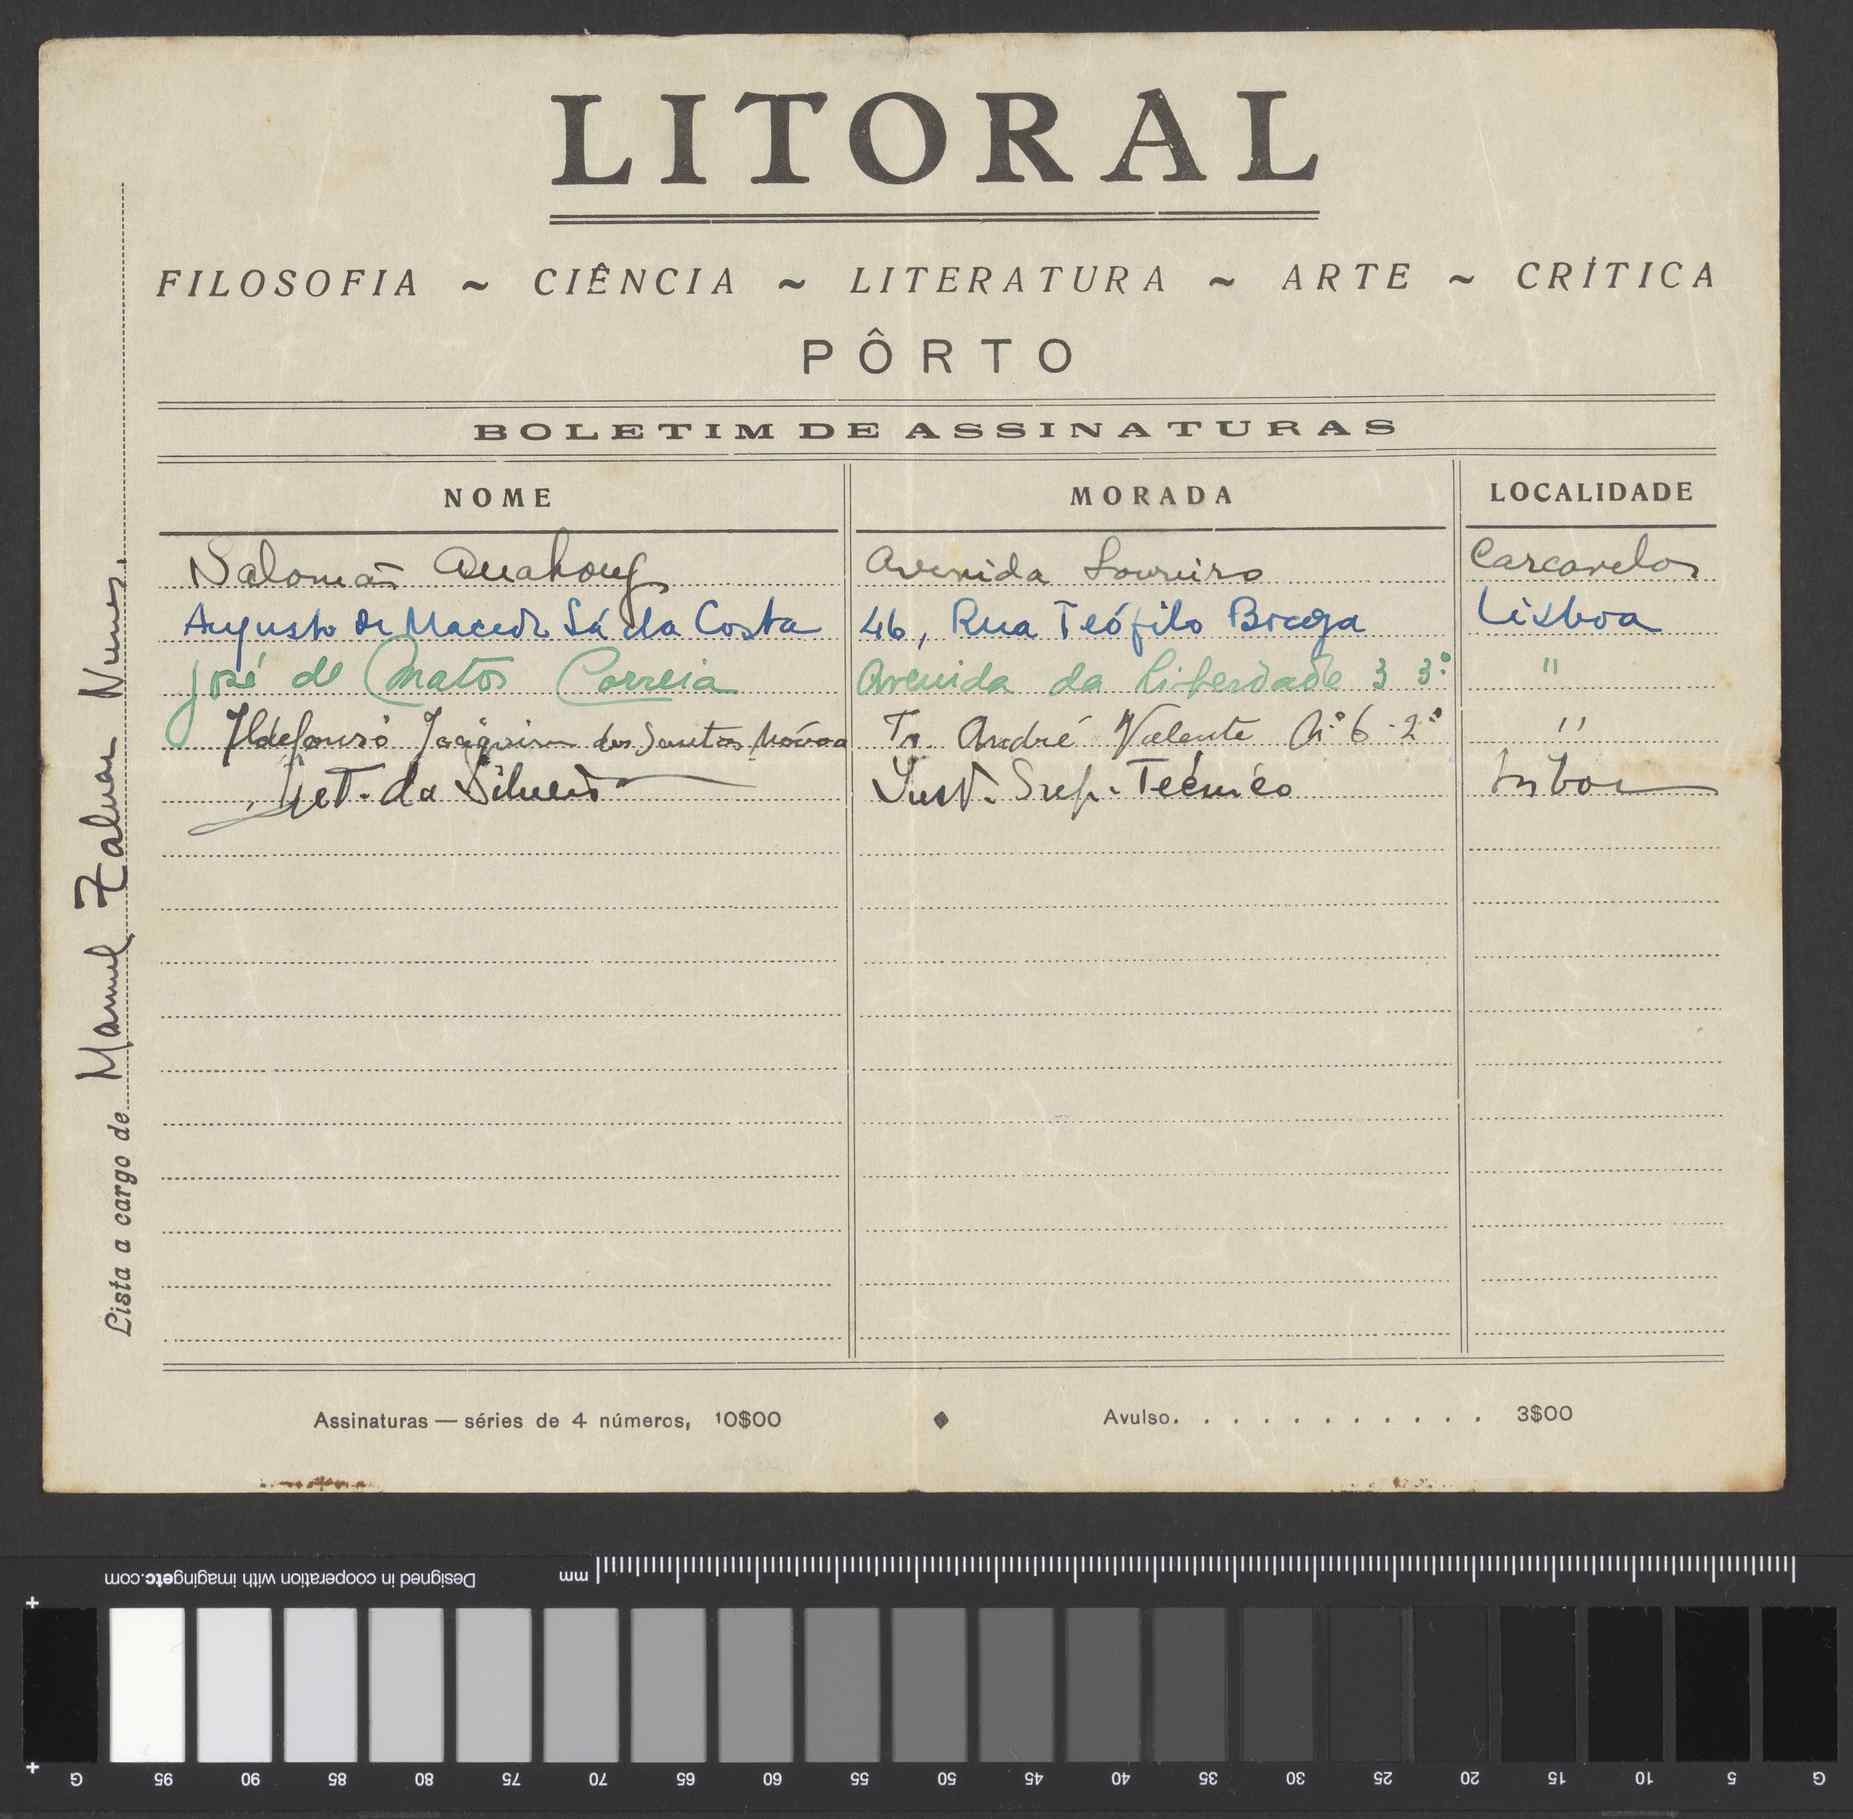 LITORAL
FILOSOFIA ~ CIÊNCIA ~ LITERATURA ~ ARTE ~ CRÍTICA
PÔRTO
BOLETIM DE ASSINATURAS
NOME MORADA LOCALIDADE
Salomão Avenida Loureiro Carcavelos
Augusto de Macedo Sá da Costa 46, Rua Teófilo Braga Lisboa
José de Matos Correia Avenida da Liberdade 3 3º "
Ildefonso Joaquim dos Santos Tr. André Valente Nº 6-2º "
da Silveira Inst. Sup. Técnico Lisboa
Lista a cargo de Manuel Zaluar Nunes.
Assinaturas — séries de 4 números, 10$00 ◆ Avulso. . . . . . . . . . . . 3$00
Designed in cooperation with imagingetc.com
mm
G 95 90 85 80 75 70 65 60 55 50 45 40 35 30 25 20 15 10 5 G